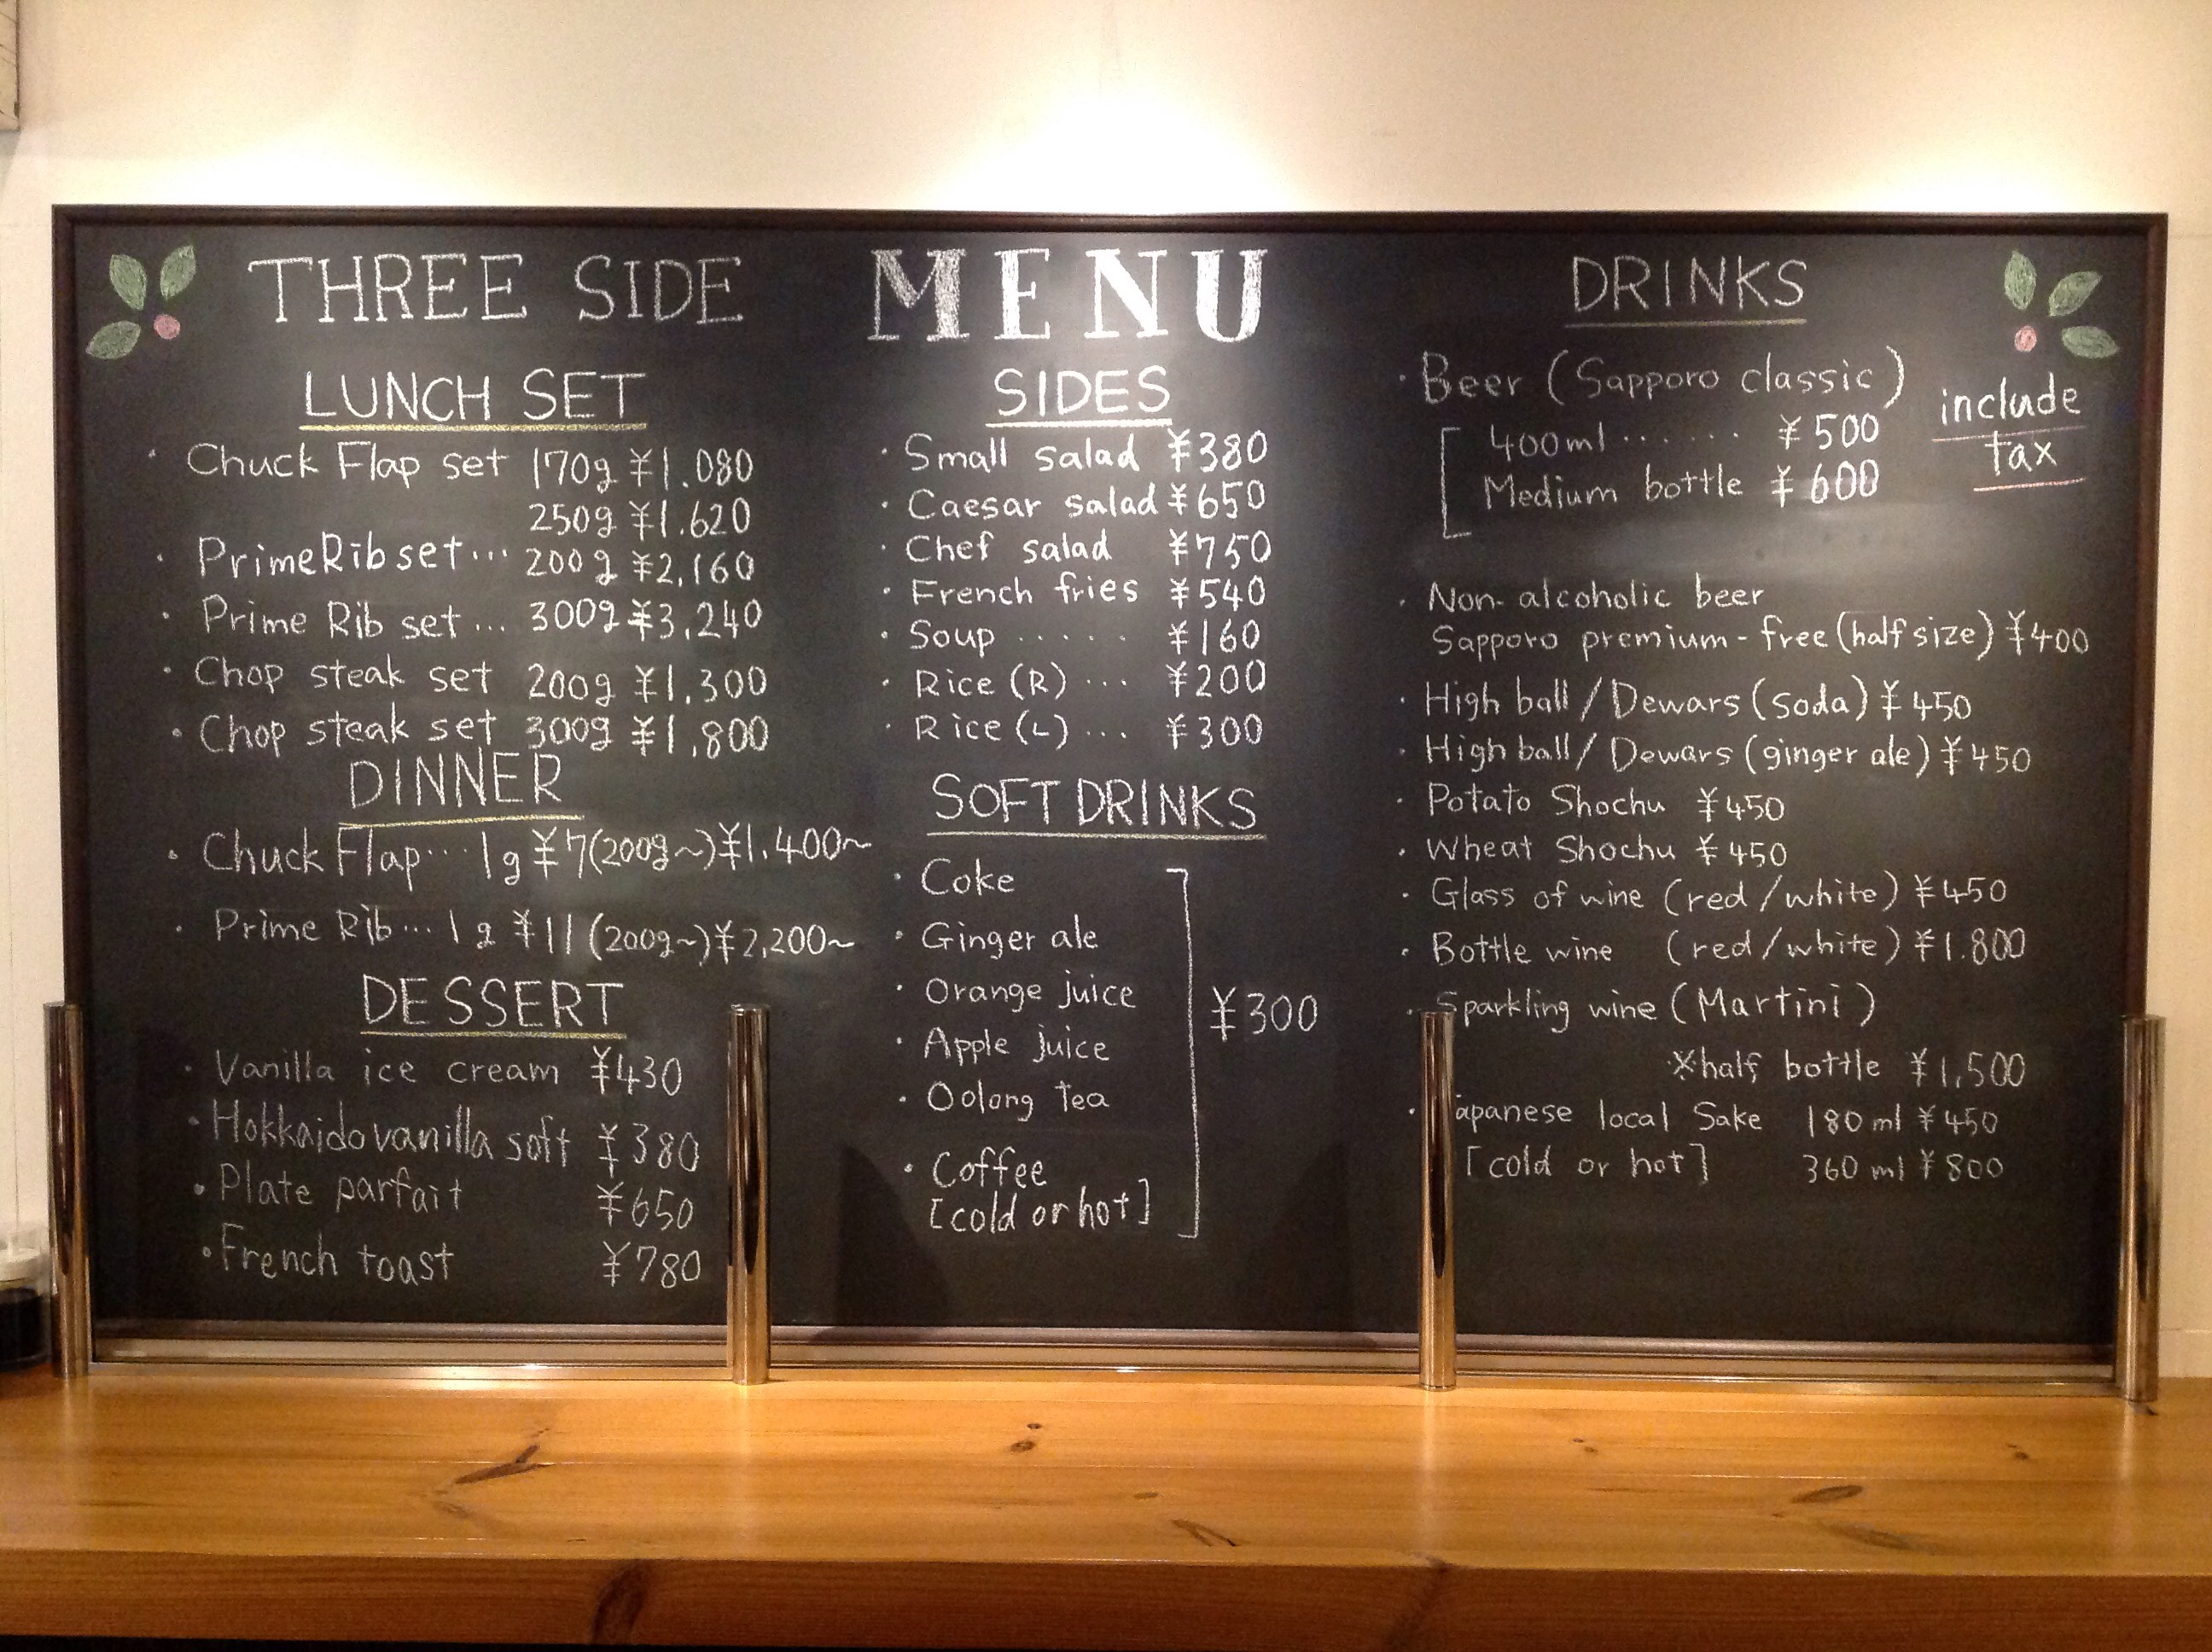 THREE SIDE MENU
LUNCH SET
・Chuck Flap set 170g ¥1.080
250g ¥1.620
・PrimeRib set… 200g ¥2,160
・Prime Rib set… 300g ¥3,240
・Chop steak set 200g ¥1,300
・Chop steak set 300g ¥1,800
DINNER
・Chuck Flap… 1g ¥7(200g~)¥1.400~
・Prime Rib… 1g ¥11(200g~)¥2,200~
DESSERT
・Vanilla ice cream ¥430
・Hokkaido vanilla soft ¥380
・Plate parfait ¥650
・French toast ¥780
SIDES
・Small salad ¥380
・Caesar salad ¥650
・Chef salad ¥750
・French fries ¥540
・Soup ..... ¥160
・Rice (R) ... ¥200
・Rice (L) ... ¥300
SOFT DRINKS
・Coke
・Ginger ale
・Orange juice
・Apple juice
・Oolong tea
・Coffee
[cold or hot]
¥300
DRINKS
・Beer (Sapporo classic)
400ml ...... ¥500
Medium bottle ¥600
include
tax
・Non-alcoholic beer
Sapporo premium-free (half size) ¥400
・High ball/Dewars (soda) ¥450
・High ball/Dewars (ginger ale) ¥450
・Potato Shochu ¥450
・Wheat Shochu ¥450
・Glass of wine (red/white) ¥450
・Bottle wine (red/white) ¥1.800
・Sparkling wine (Martini)
※half bottle ¥1,500
・apanese local Sake 180ml ¥450
[cold or hot] 360ml ¥800